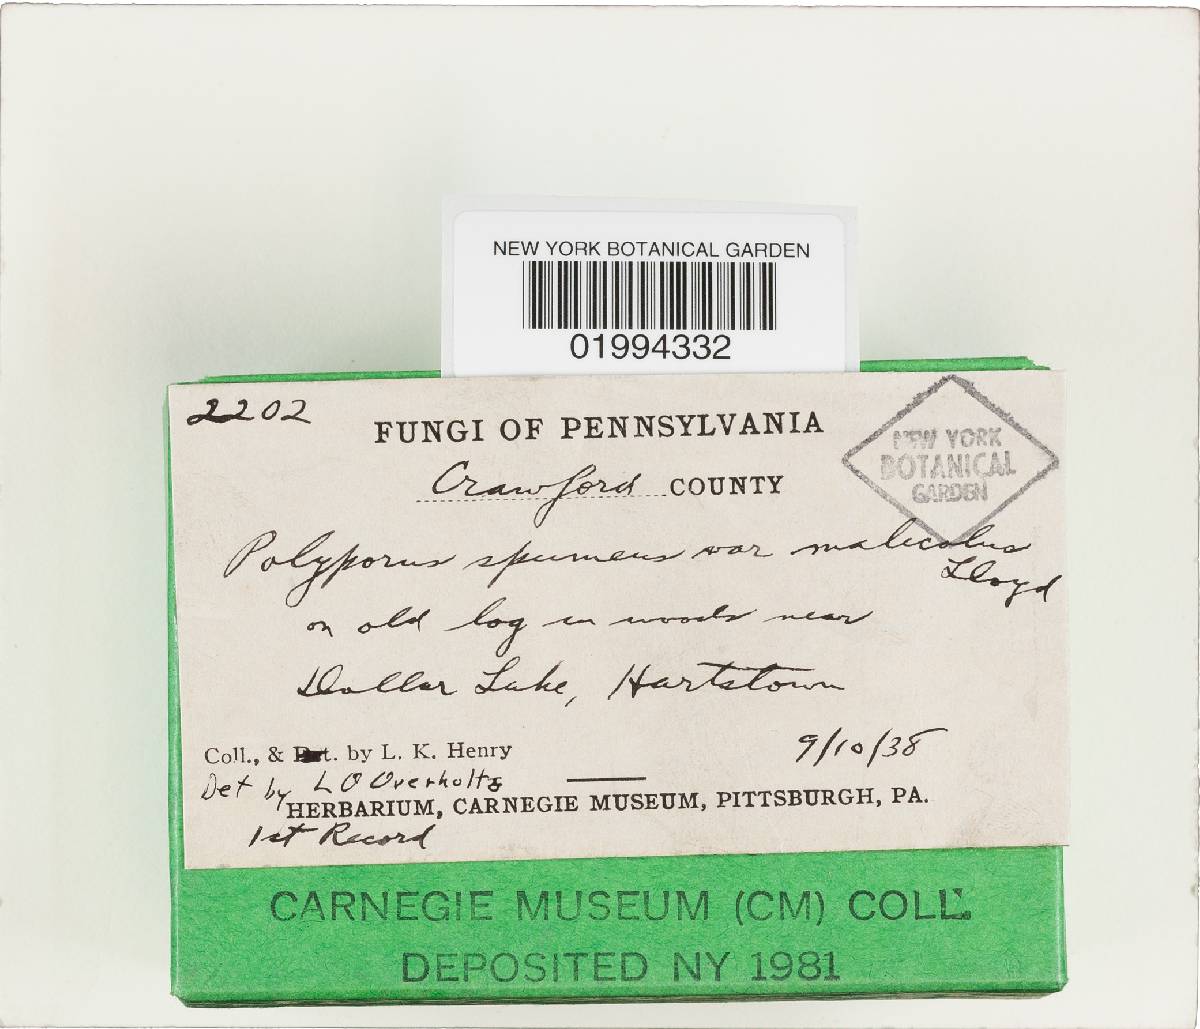 NEW YORK BOTANICAL GARDEN
01994332
2202
FUNGI OF PENNSYLVANIA
NEW YORK
BOTANICAL
GARDEN
Crawford COUNTY
Polyporus spumeus var malicolus
Lloyd
on old log in woods near
Dollar Lake, Hartstown
Coll., & Det. by L. K. Henry
9/10/38
Det by L O Overholts
HERBARIUM, CARNEGIE MUSEUM, PITTSBURGH, PA.
1st Record
CARNEGIE MUSEUM (CM) COLL.
DEPOSITED NY 1981